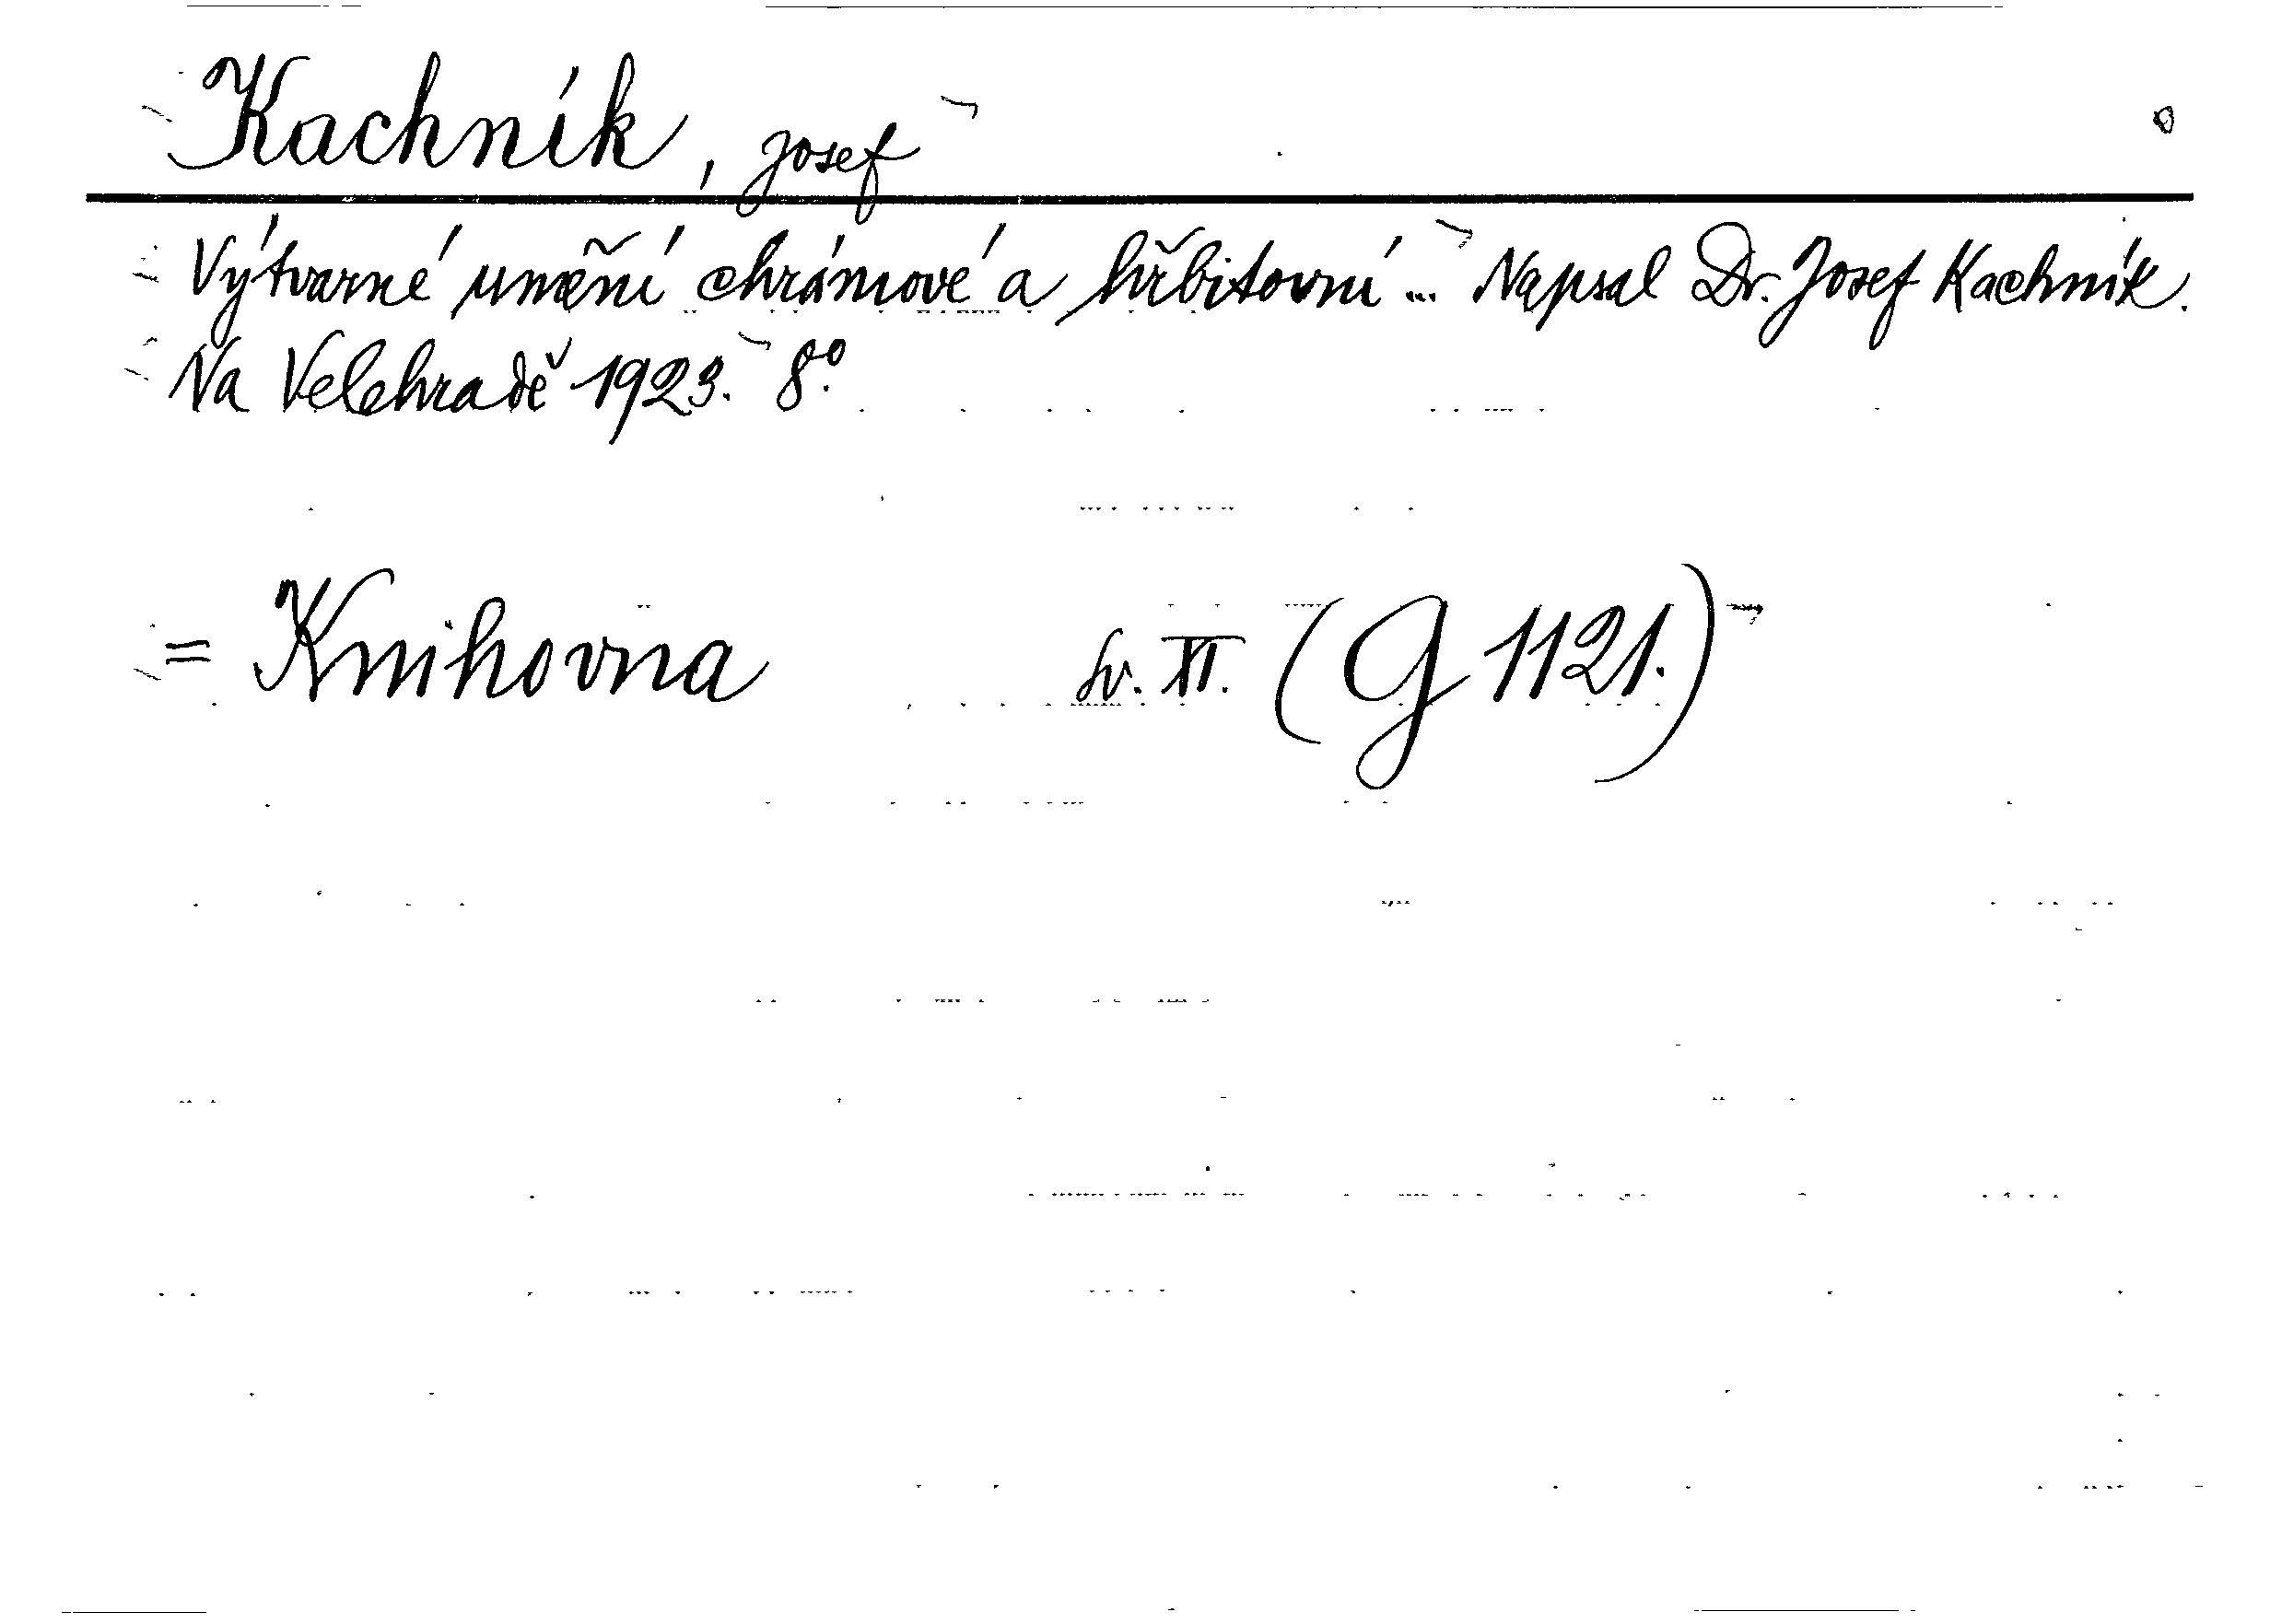 Kachník, Josef
Výtvarné umění chrámové a hřbitovní... Napsal Dr. Josef Kachník.
Na Velehradě 1923. 8°.
= Knihovna sv. XI. (G 1121.)